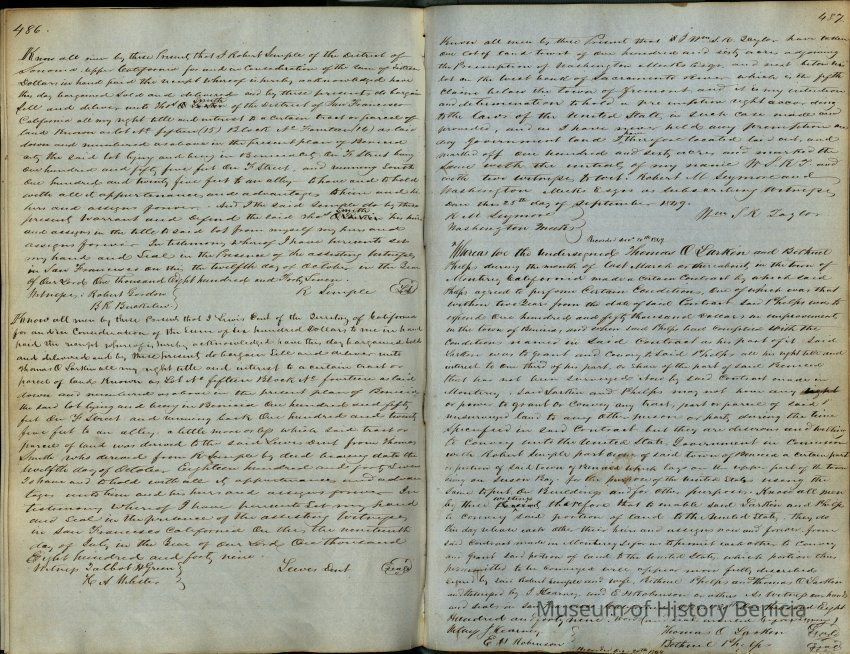 486.
Know all men by these Present, that I Robert Semple of the District of
Sonoma Upper California for and in Consideration of the sum of sixteen
Dollars in hand paid the receipt where of is hereby acknowledged have
this day bargained Sold and delivered and by these presents do bargain
Sell and deliver unto Thos Smith of the District of San Francisco
California all my right title and interest to a certain tract or parcel of
land Known as lot No fifteen (15) Block No Fourteen (14) as laid
down and numbered as above in the present plan of Benicia
City the said lot lying and being in Benicia City on F. Street being
One hundred and fifty five feet on F. Street, and running back
One hundred and twenty five feet to an alley. To have and to hold
with all its appurtenances and advantages to him and his
heirs and assigns forever. And I the said Semple do by these
present, Warrant and defend the said Thos Smith his heirs
and assigns in the title to said lot from myself my heirs and
assigns forever. In testimony whereof I have hereunto set
my hand and Seal in the Presence of the attesting Witnesses
in San Francisco on this the twelfth day of October in the Year
of Our Lord One thousand Eight hundred and Forty Seven.
Witness: Robert Gordon R. Semple Seal
B R Buckelew
Know all men by these Presents that I Lewis Dent of the Territory of California
for and in Consideration of the Sum of Six hundred Dollars to me in hand
paid the receipt where of is hereby acknowledged have this day bargained Sold
and delivered and by these present do bargain Sell and deliver unto
Thomas O Larkin all my right title and interest to a certain tract or
parcel of land Known as Lot No fifteen Block No fourteen as laid
down and numbered as above in the present plan of Benicia
the said lot lying and being in Benicia One hundred and fifty
feet on F Street and running back One hundred and twenty
five feet to an alley, a little more or less which said tract or
parcel of land was deeded to the said Lewis Dent from Thomas
Smith, who derived from R Semple by deed bearing date the
twelfth day of October Eighteen hundred and forty Seven
To have and to hold with all its appurtenances and advan
tages unto him and his heirs and assigns forever. In
testimony whereof I have hereunto Set my hand
and Seal in the presence of the attesting Witnesses
in San Francisco California on this the nineteenth
day of July in the Year of our Lord One thousand
Eight hundred and forty nine.
Witness Talbot H Green Lewis Dent Seal
H. A Webster
487.
Know all men by these Present that I Wm S. K. Taylor have taken
one lot of land tract of one hundred and sixty acres adjoining
the Preemption of Washington Meeks Esqr. and next below his
lot on the west bank of Sacramento River, which is the fifth
claim below the town of Fremont, and it is my intention
and determination to hold a pre emption right according
to the laws of the United State, in such case made and
provided, and as I have never held any preemption on
any government land I therefore located this act, and
marked off One hundred and sixty acres, and inserted the
Same with the initials of my name W S K T and
with two witness, to wit: Robert M. Seymore and
Washington Meeks Esqrs as subscribing Witnesses
on this 25th day of September 1849.
R M Seymore Wm S K Taylor
Washington Meeks
Recorded Decr 11th 1849
Whereas for the Undersigned Thomas O Larkin and Bethuel
Phelps during the month of last March as the resident in the town of
Monterey California made a certain Contract by which said
Phelps agreed to perform Certain Conditions, One of which was that
within two Years from the date of said Contract said Phelps was to
expend One hundred and fifty thousand dollars in improvements
in the town of Benicia, and when said Phelps had complied with the
Conditions named in Said Contract as his part of it Said
Larkin was to grant and Convey to said Phelps all his right title and
interest to One third of his part, or share of the part of Said Benicia
that has not been surveyed. Now by said Contract made in
Monterey Said Larkin and Phelps may not sell in any
manner to grant or Convey any part, or parcel of said
unsurveyed land to any other person or party during the time
Specified in said Contract but they are desirous and willing
to Convey unto the United State, Government in Connexion
with Robert Semple part owner of said town of Benicia a certain part
or portion of said town of Benicia which lays on the upper part of the town
away on Suisun Bay for the purpose of the United States using the
Same to put on Buildings and for other purposes. Know all men
by these Presents therefore that to enable said Larkin and Phelps
to Convey said portion of land to the United State, They do
this day release each other their heirs and assigns now and forever from
said contract made in Monterey so far as to permit each other to Convey
and grant said portion of land to the United State, which portion thus
permitted to be conveyed will appear more fully described
signed by said Robert Semple and wife, Bethuel Phelps and Thomas O Larkin
and witnessed by J Kearney and E H Robinson
Witness J Kearney Thomas O Larkin Seal
E H Robinson Bethuel Phelps Seal
Museum of History Benicia